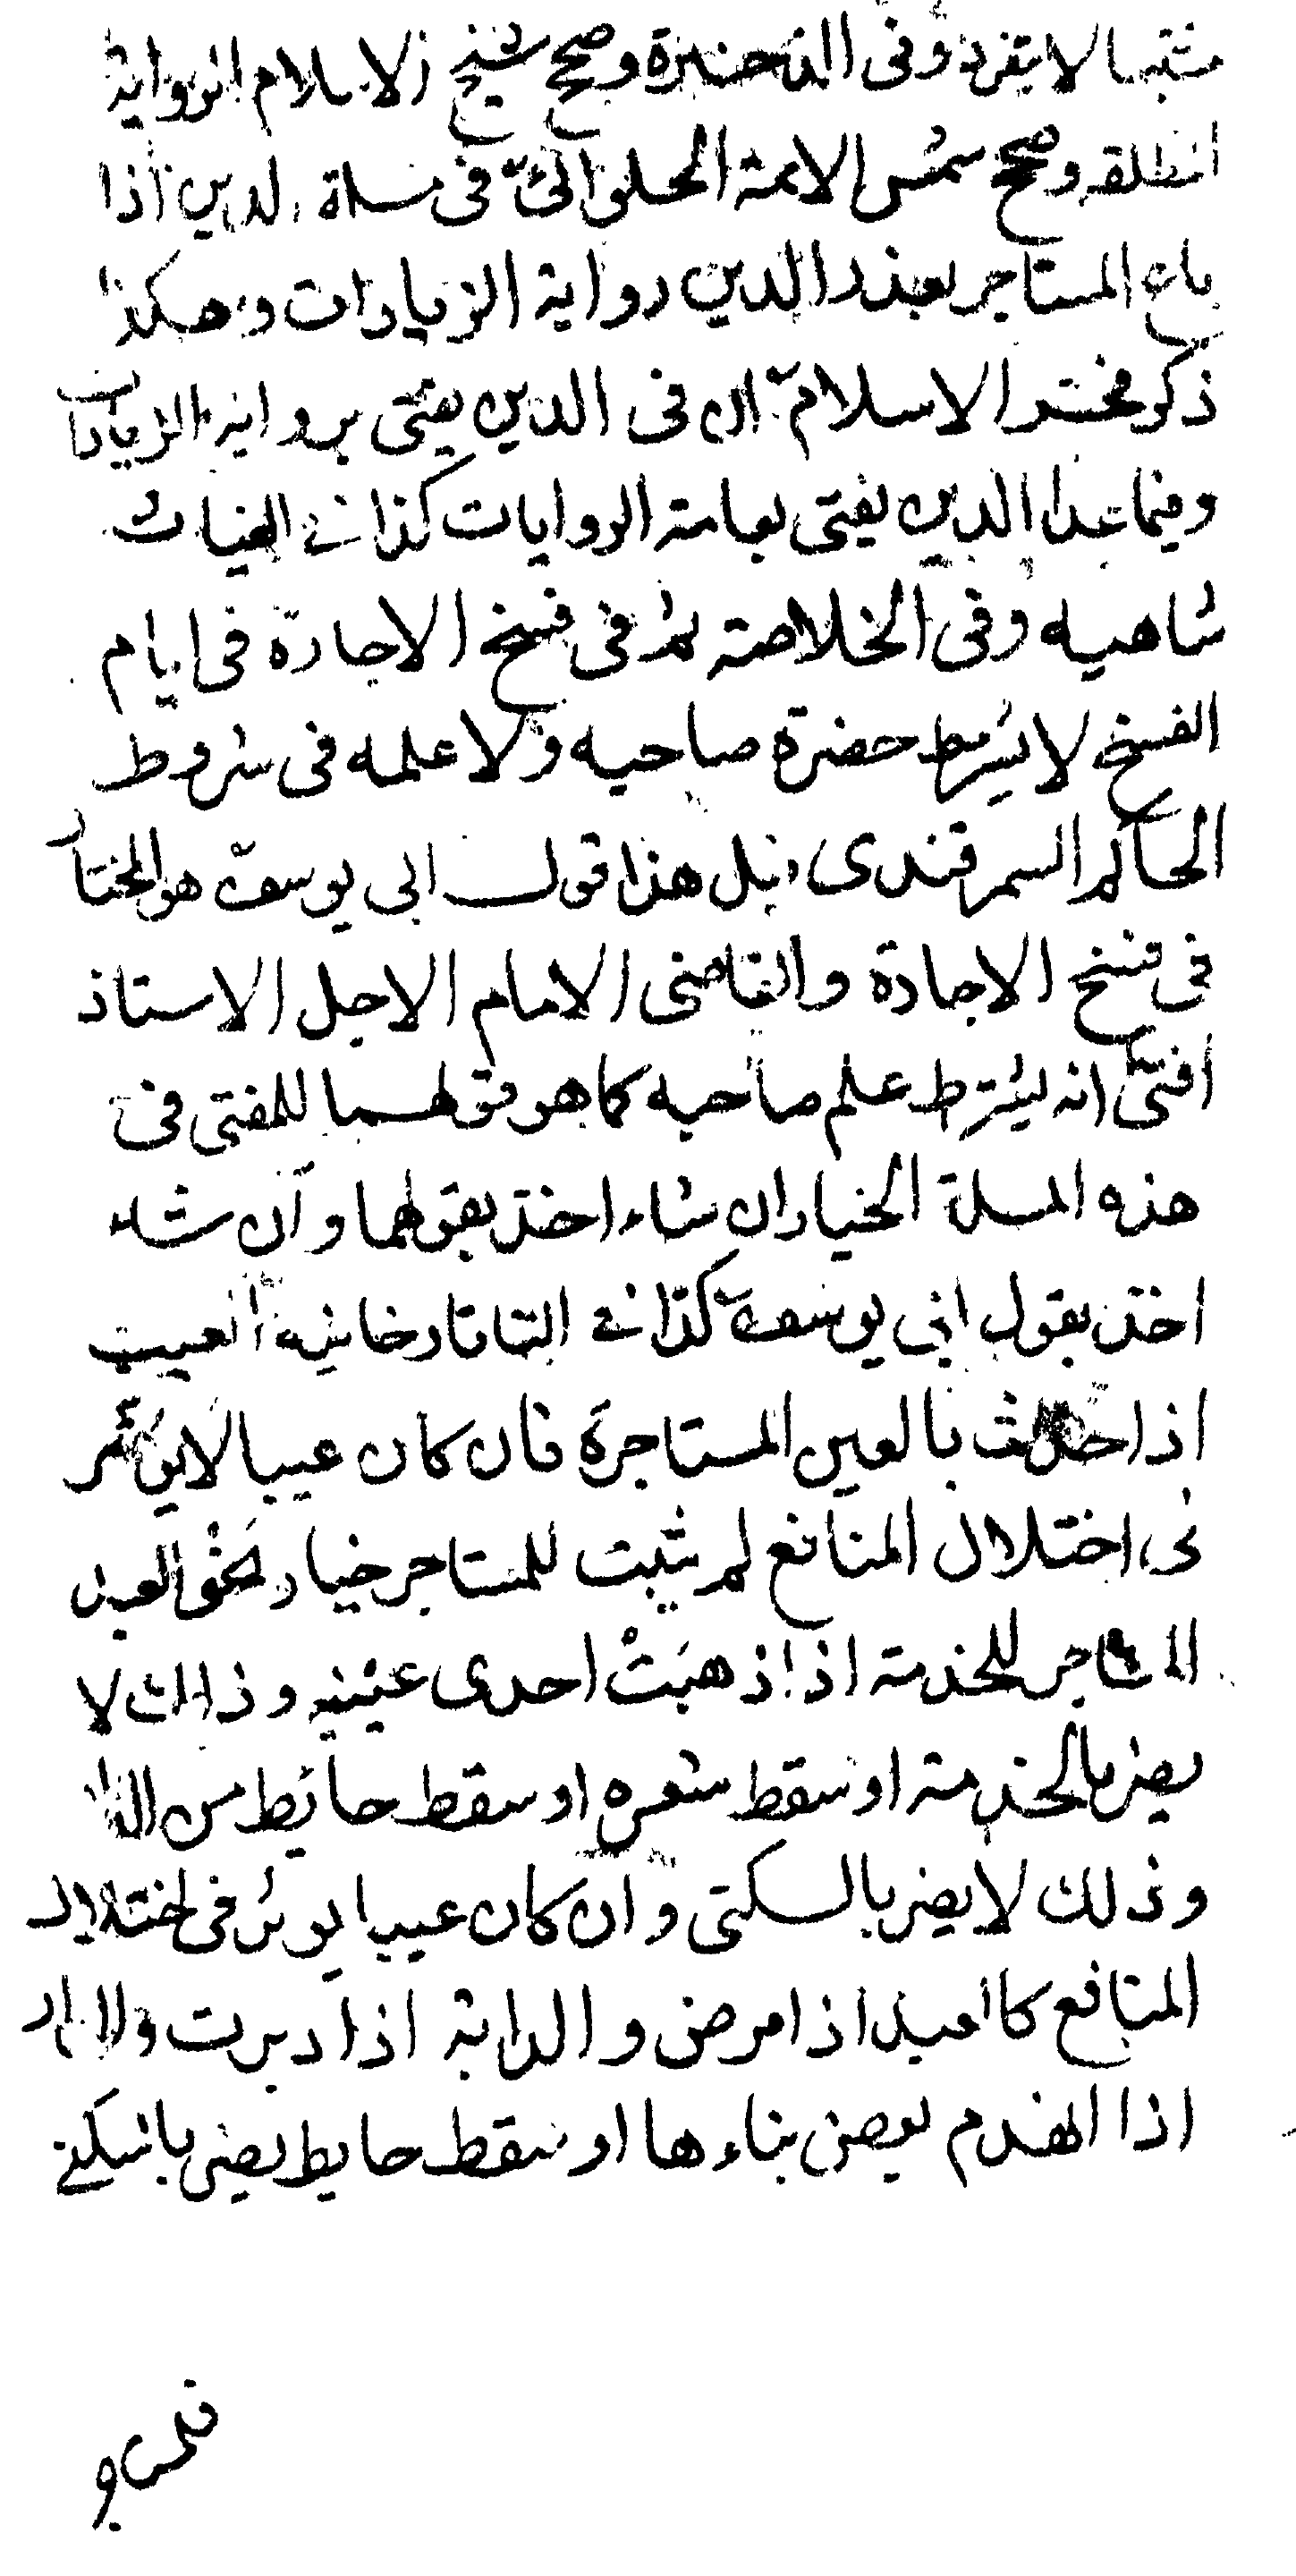 مشتبها لا يتفرد وفى الذخيرة وصحح شيخ الاسلام الرواية
المطلقه وصحح شمس الائمة الحلوائى فى مسئلة الدين اذا
باع المستاجر بعذر الدين رواية الزيادات وهكذا
ذكر فخر الاسلام ان فى الدين يفتى برواية الزيادات
وفيما عدا الدين يفتى بعامة الروايات كذا فى الغياث
شاهيه وفى الخلاصة ثم فى فسخ الاجارة فى ايام
الفسخ لا يشترط حضرة صاحبه ولا علمه فى شروط
الحاكم السمرقندى قبل هذا قول ابى يوسف هو المختار
فى فسخ الاجارة والقاضى الامام الاجل الاستاذ
افتى انه يشترط علم صاحبه كما هو قولهما للمفتى فى
هذه المسلة الخيار ان شاء اخذ بقولهما وان شاء
اخذ بقول ابى يوسف كذا فى التاتارخانيه العيب
اذا حدث بالعين المستاجرة فان كان عيبا لا يؤثر
فى اختلال المنافع لم يثبت للمستاجر خيار نحو العبد
المستاجر للخدمة اذا ذهبت احدى عينيه وذالك لا
يضر بالخدمة او سقط شعره او سقط حائط من الدار
وذلك لا يضر بالسكنى وان كان عيبا يوثر فى اختلال
المنافع كالعبد اذا مرض والدابة اذا دبرت والدار
اذا انهدم بعض بناءها او سقط حايط يضر بالسكنى